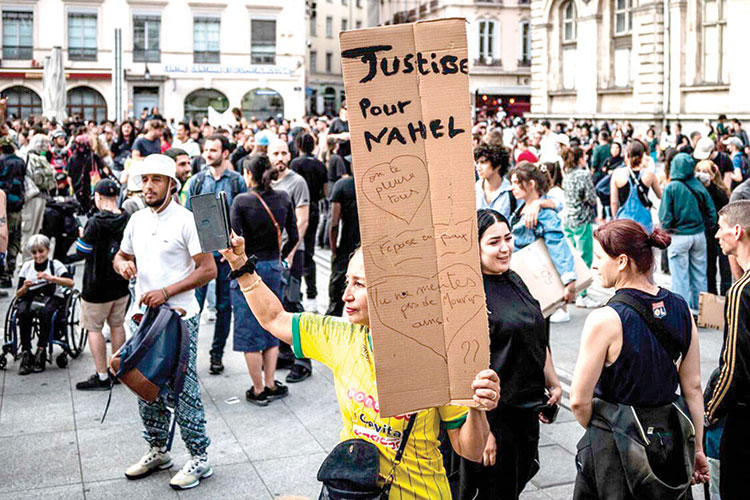 JUSTICE
Pour
NAHEL
on te pleure
tous
repose en paix
Tu ne merites
pas de Mourir
ainsi
??
OL